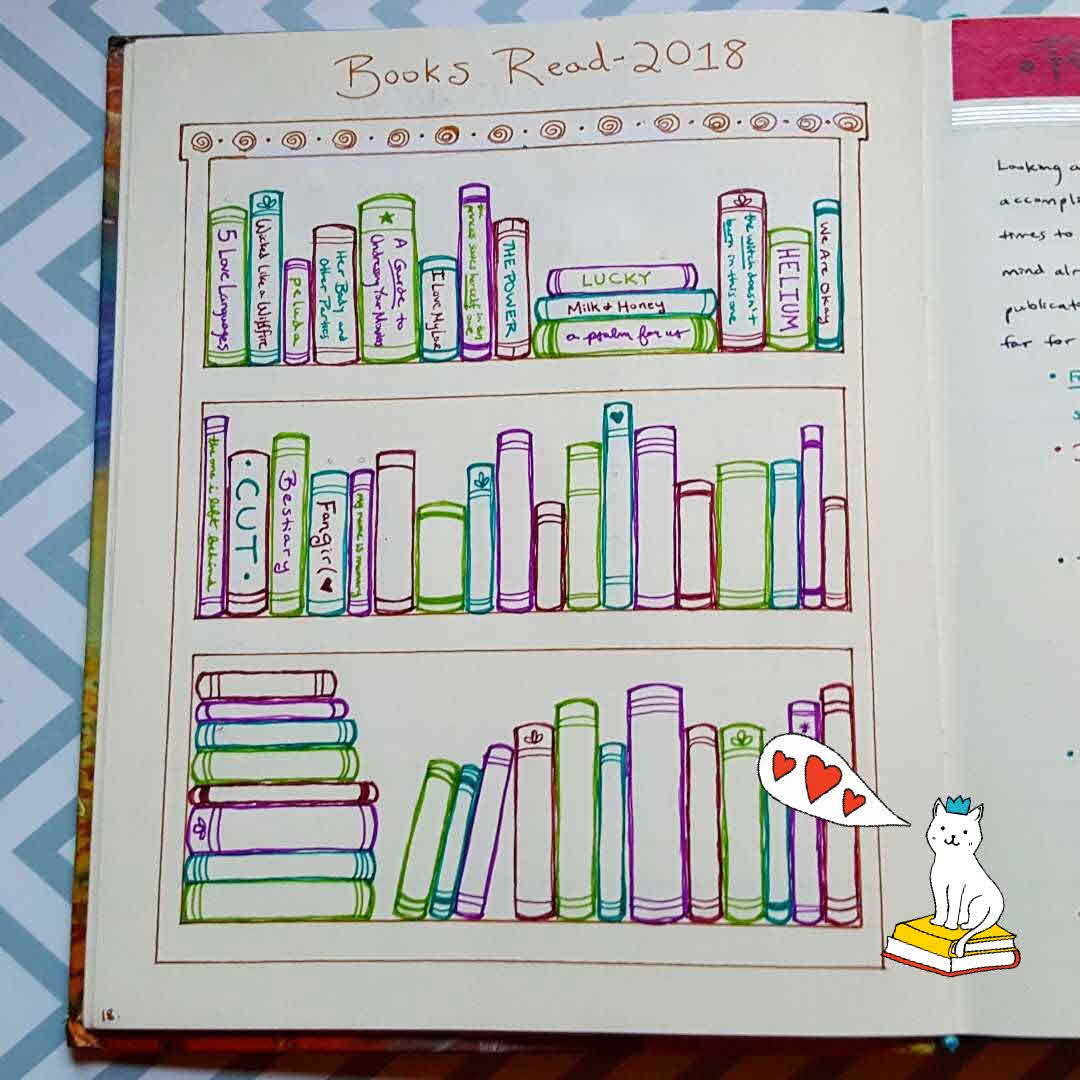 Books Read-2018
5 Love Languages
Wicked Like a Wildfire
peluda
Her Body and
Other Parties
A Guide to
Undressing Your Monsters
I Love My Love
the princess saves herself in this one
THE POWER
LUCKY
Milk & Honey
a psalm for us
the witch doesn't
burn in this one
HELIUM
We Are Okay
the one i left behind
•CUT•
Bestiary
Fangirl
my name is memory
Looking a
accompl
times to
mind alr
publicat
far for
18.